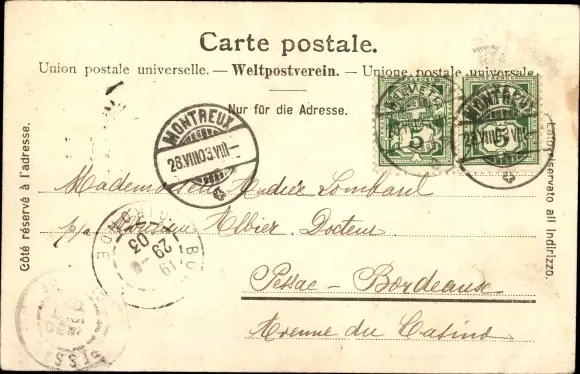 Carte postale.
Union postale universelle. — Weltpostverein. — Unione postale universale.
Nur für die Adresse.
Côté réservé à l'adresse.
Lato riservato all' Indirizzo.
HELVETIA
5
5
MONTREUX
28.VIII.03.VIII—
MONTREUX
28.VIII.03.VIII
Mademoiselle Andrée Lombard
p/a Monsieur Albier. Docteur
Pessac - Bordeaux
Avenue du Casino
BOR DE
19
29
03